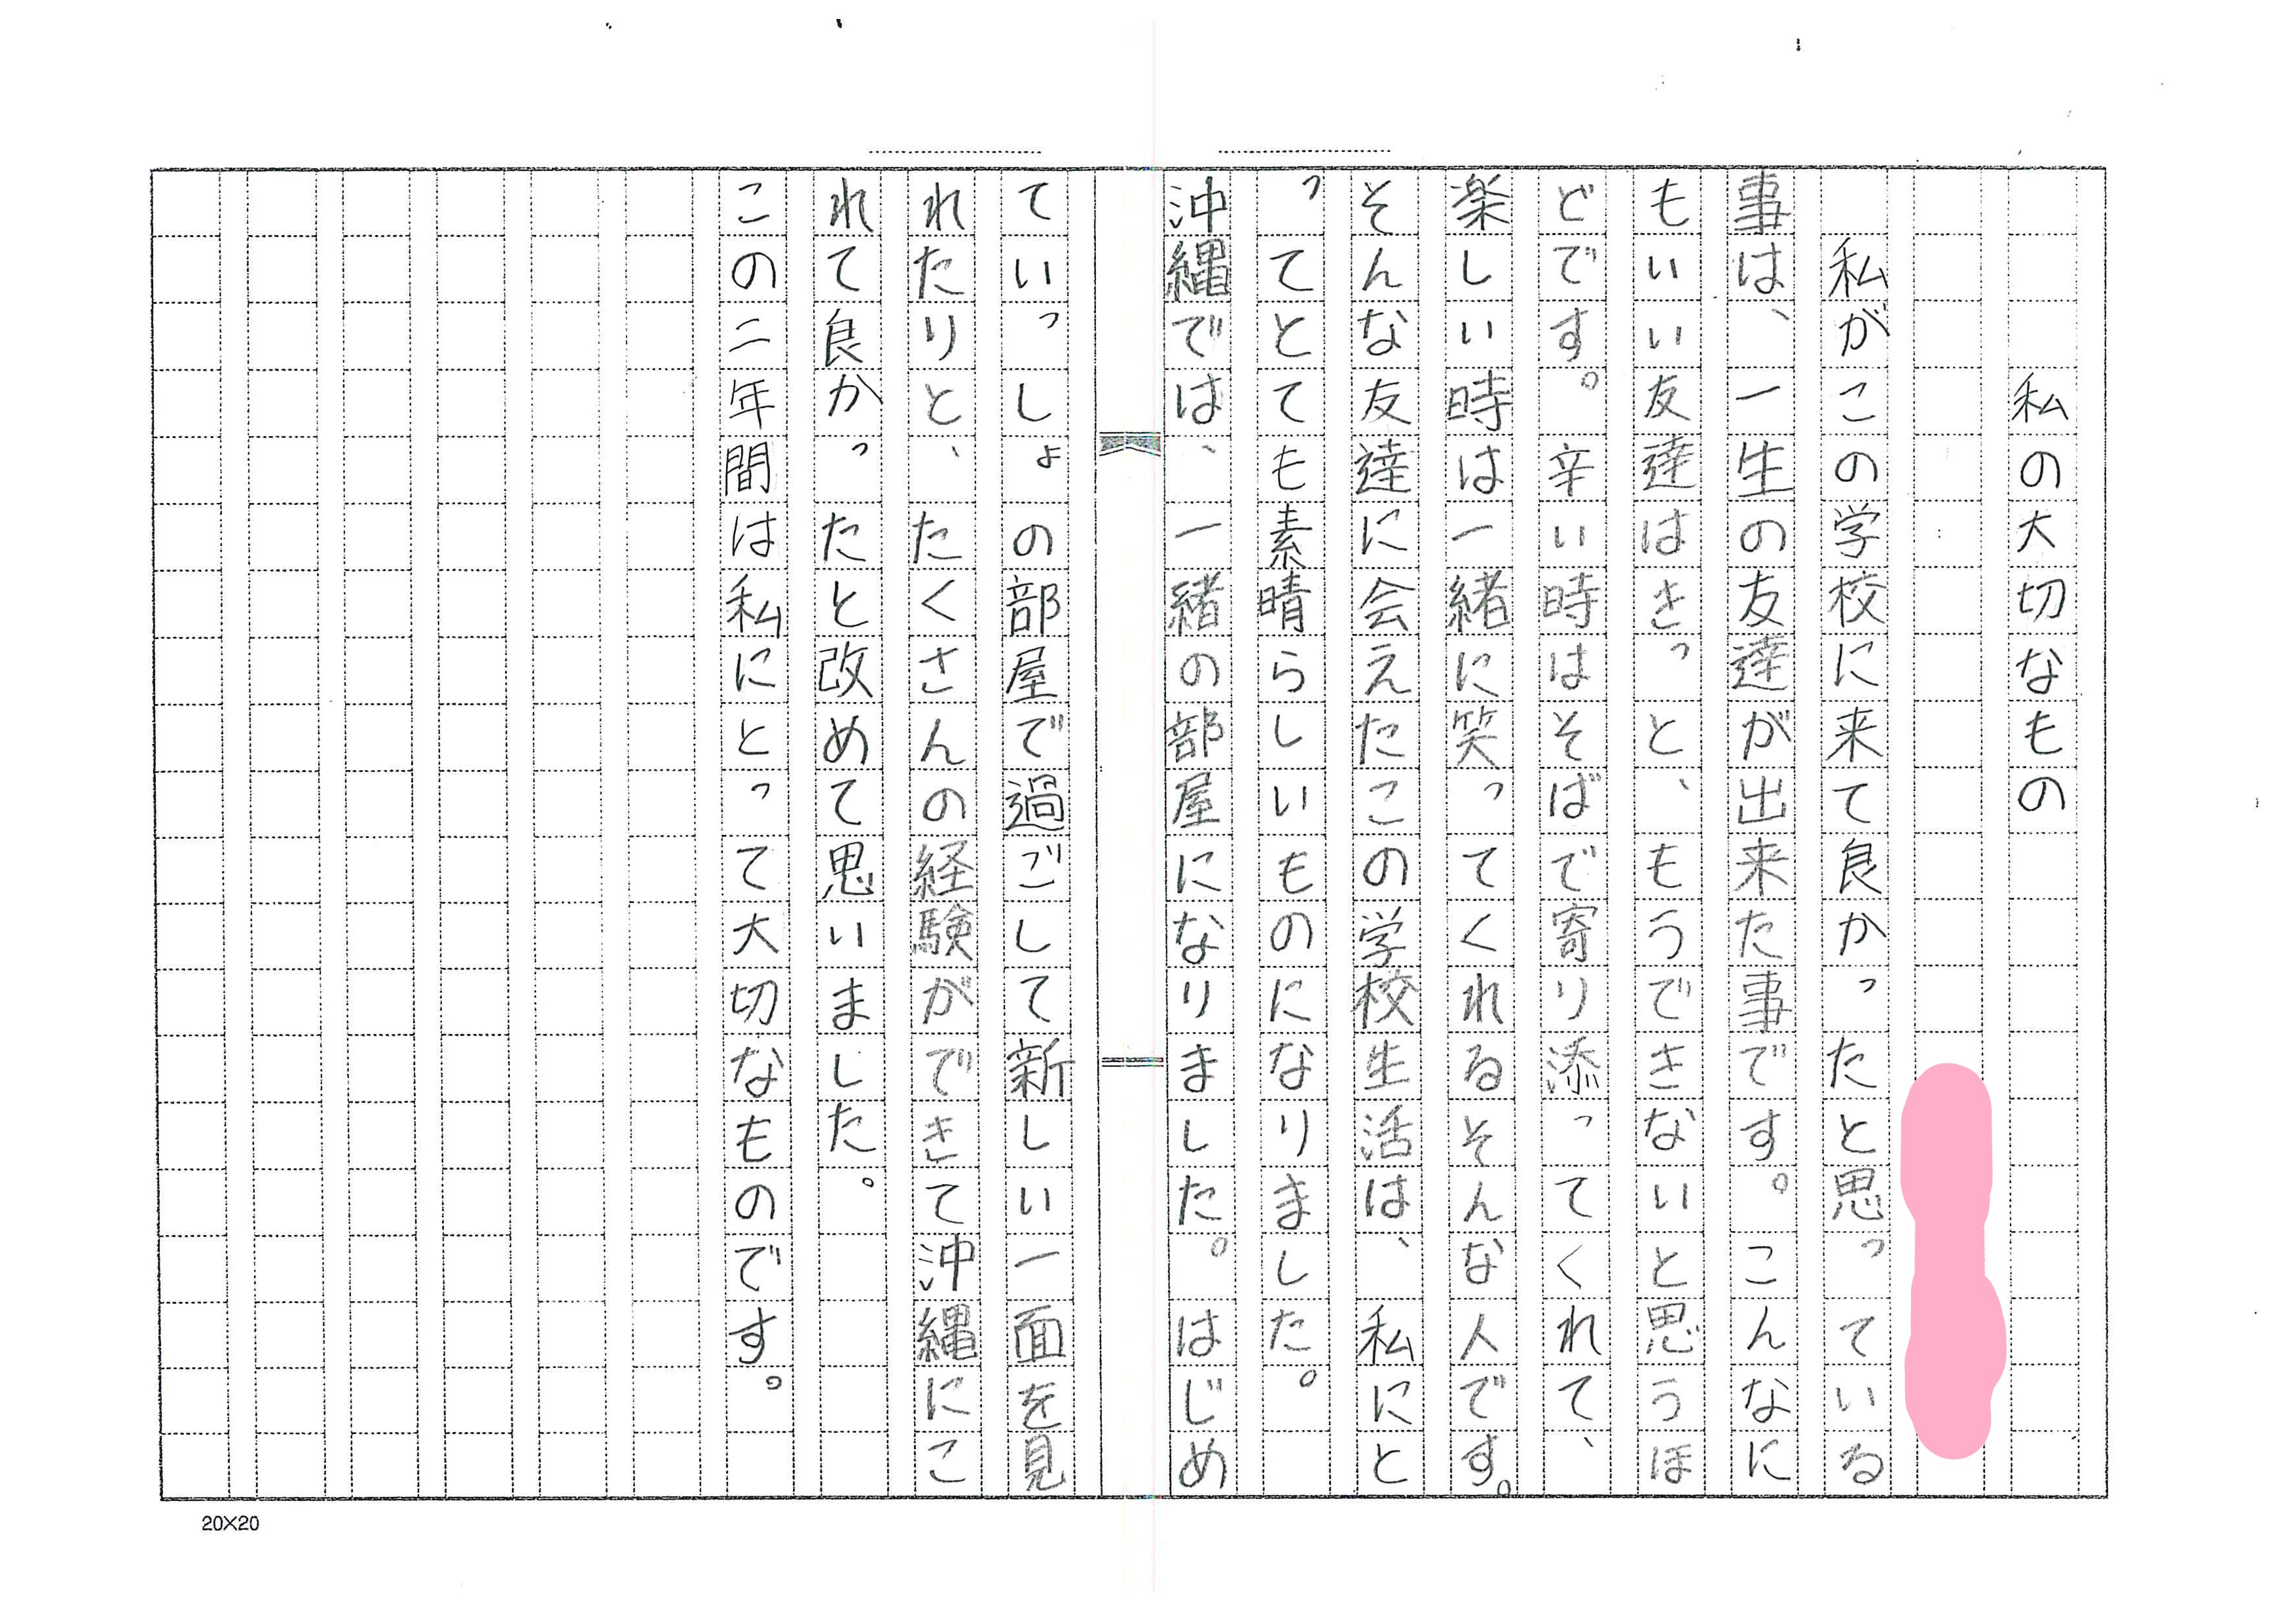 私の大切なもの
私がこの学校に来て良かったと思っている
事は、一生の友達が出来た事です。こんなに
もいい友達はきっと、もうできないと思うほ
どです。辛い時はそばで寄り添ってくれて、
楽しい時は一緒に笑ってくれるそんな人です。
そんな友達に会えたこの学校生活は、私にと
ってとても素晴らしいものになりました。
沖縄では、一緒の部屋になりました。はじめ
ていっしょの部屋で過ごして新しい一面を見
れたりと、たくさんの経験ができて沖縄にこ
れて良かったと改めて思いました。
この二年間は私にとって大切なものです。
20×20